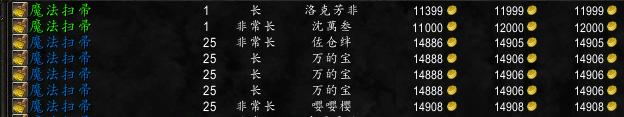 魔法扫帚 1 长 洛克芳非 11399 11999 11999
魔法扫帚 1 非常长 沈萬叁 11000 12000 12000
魔法扫帚 25 非常长 佐仓绊 14886 14905 14905
魔法扫帚 25 长 万的宝 14888 14906 14906
魔法扫帚 25 长 万的宝 14888 14906 14906
魔法扫帚 25 长 万的宝 14888 14906 14906
魔法扫帚 25 非常长 嘤嘤樱 14908 14908 14908